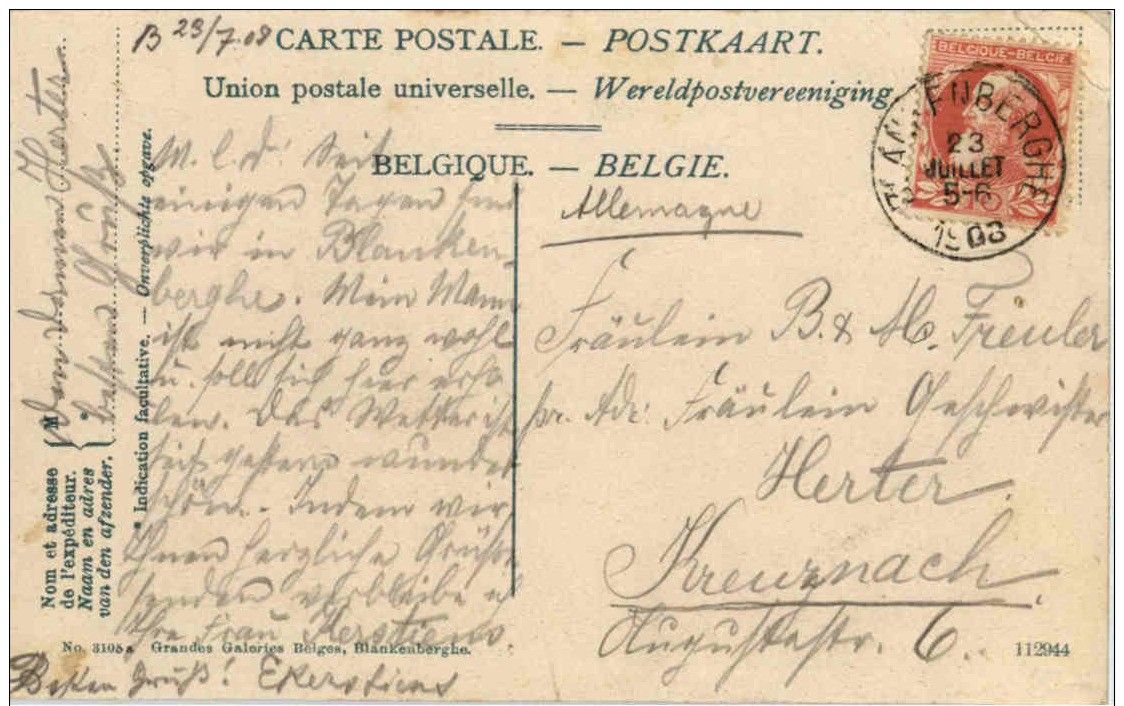 B 23/7.08
CARTE POSTALE. — POSTKAART.
Union postale universelle. — Wereldpostvereeniging
BELGIQUE. — BELGIE.
BELGIQUE-BELGIE
BLANKENBERGHE
23
JUILLET
5-6
1908
Allemagne
Fräulein B. & M. Freuler
pr. Adr: Fräulein Geschwister
Herter.
Kreuznach
Augustastr. 6.
M. l. d! Seit
einigen Tagen sind
wir in Blanken-
berghe. Mein Mann
ist nicht ganz wohl
u. soll sich hier erho-
len. Das Wetter ist
seit gestern wunder
schön. Indem wir
Ihnen herzliche Grüße
senden verbleibe ich
Ihre Frau Kerstiens.
Besten Gruß! EKerstiens
Den Damen Herter
besten Gruß
Nom et adresse
de l'expéditeur.
Naam en adres
van den afzender.
M
* Indication facultative. — Onverplichte opgave.
No. 3195a Grandes Galeries Belges, Blankenberghe.
112944